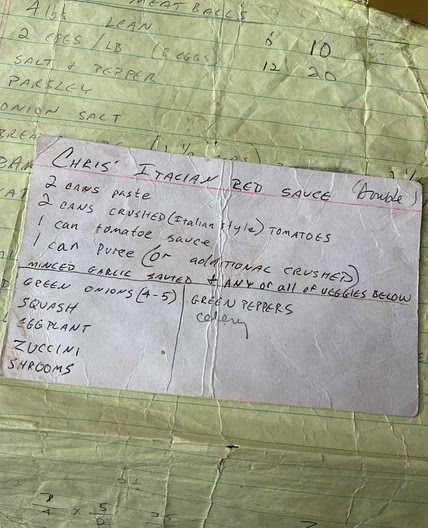 MEAT BALLS
4 lbs LEAN
2 EGGS/LB (8 EGGS)
6 10
SALT & PEPPER
12 20
PARSLEY
ONION SALT
CHRIS' ITALIAN RED SAUCE (Double)
2 CANS paste
2 CANS CRUSHED (Italian style) TOMATOES
1 can tomatoe sauce
1 can Puree (or additional CRUSHED)
MINCED GARLIC SAUTED + ANY or all of VEGGIES BELOW
GREEN ONIONS (4-5)
SQUASH
EGGPLANT
ZUCCINI
SHROOMS
GREEN PEPPERS
celery